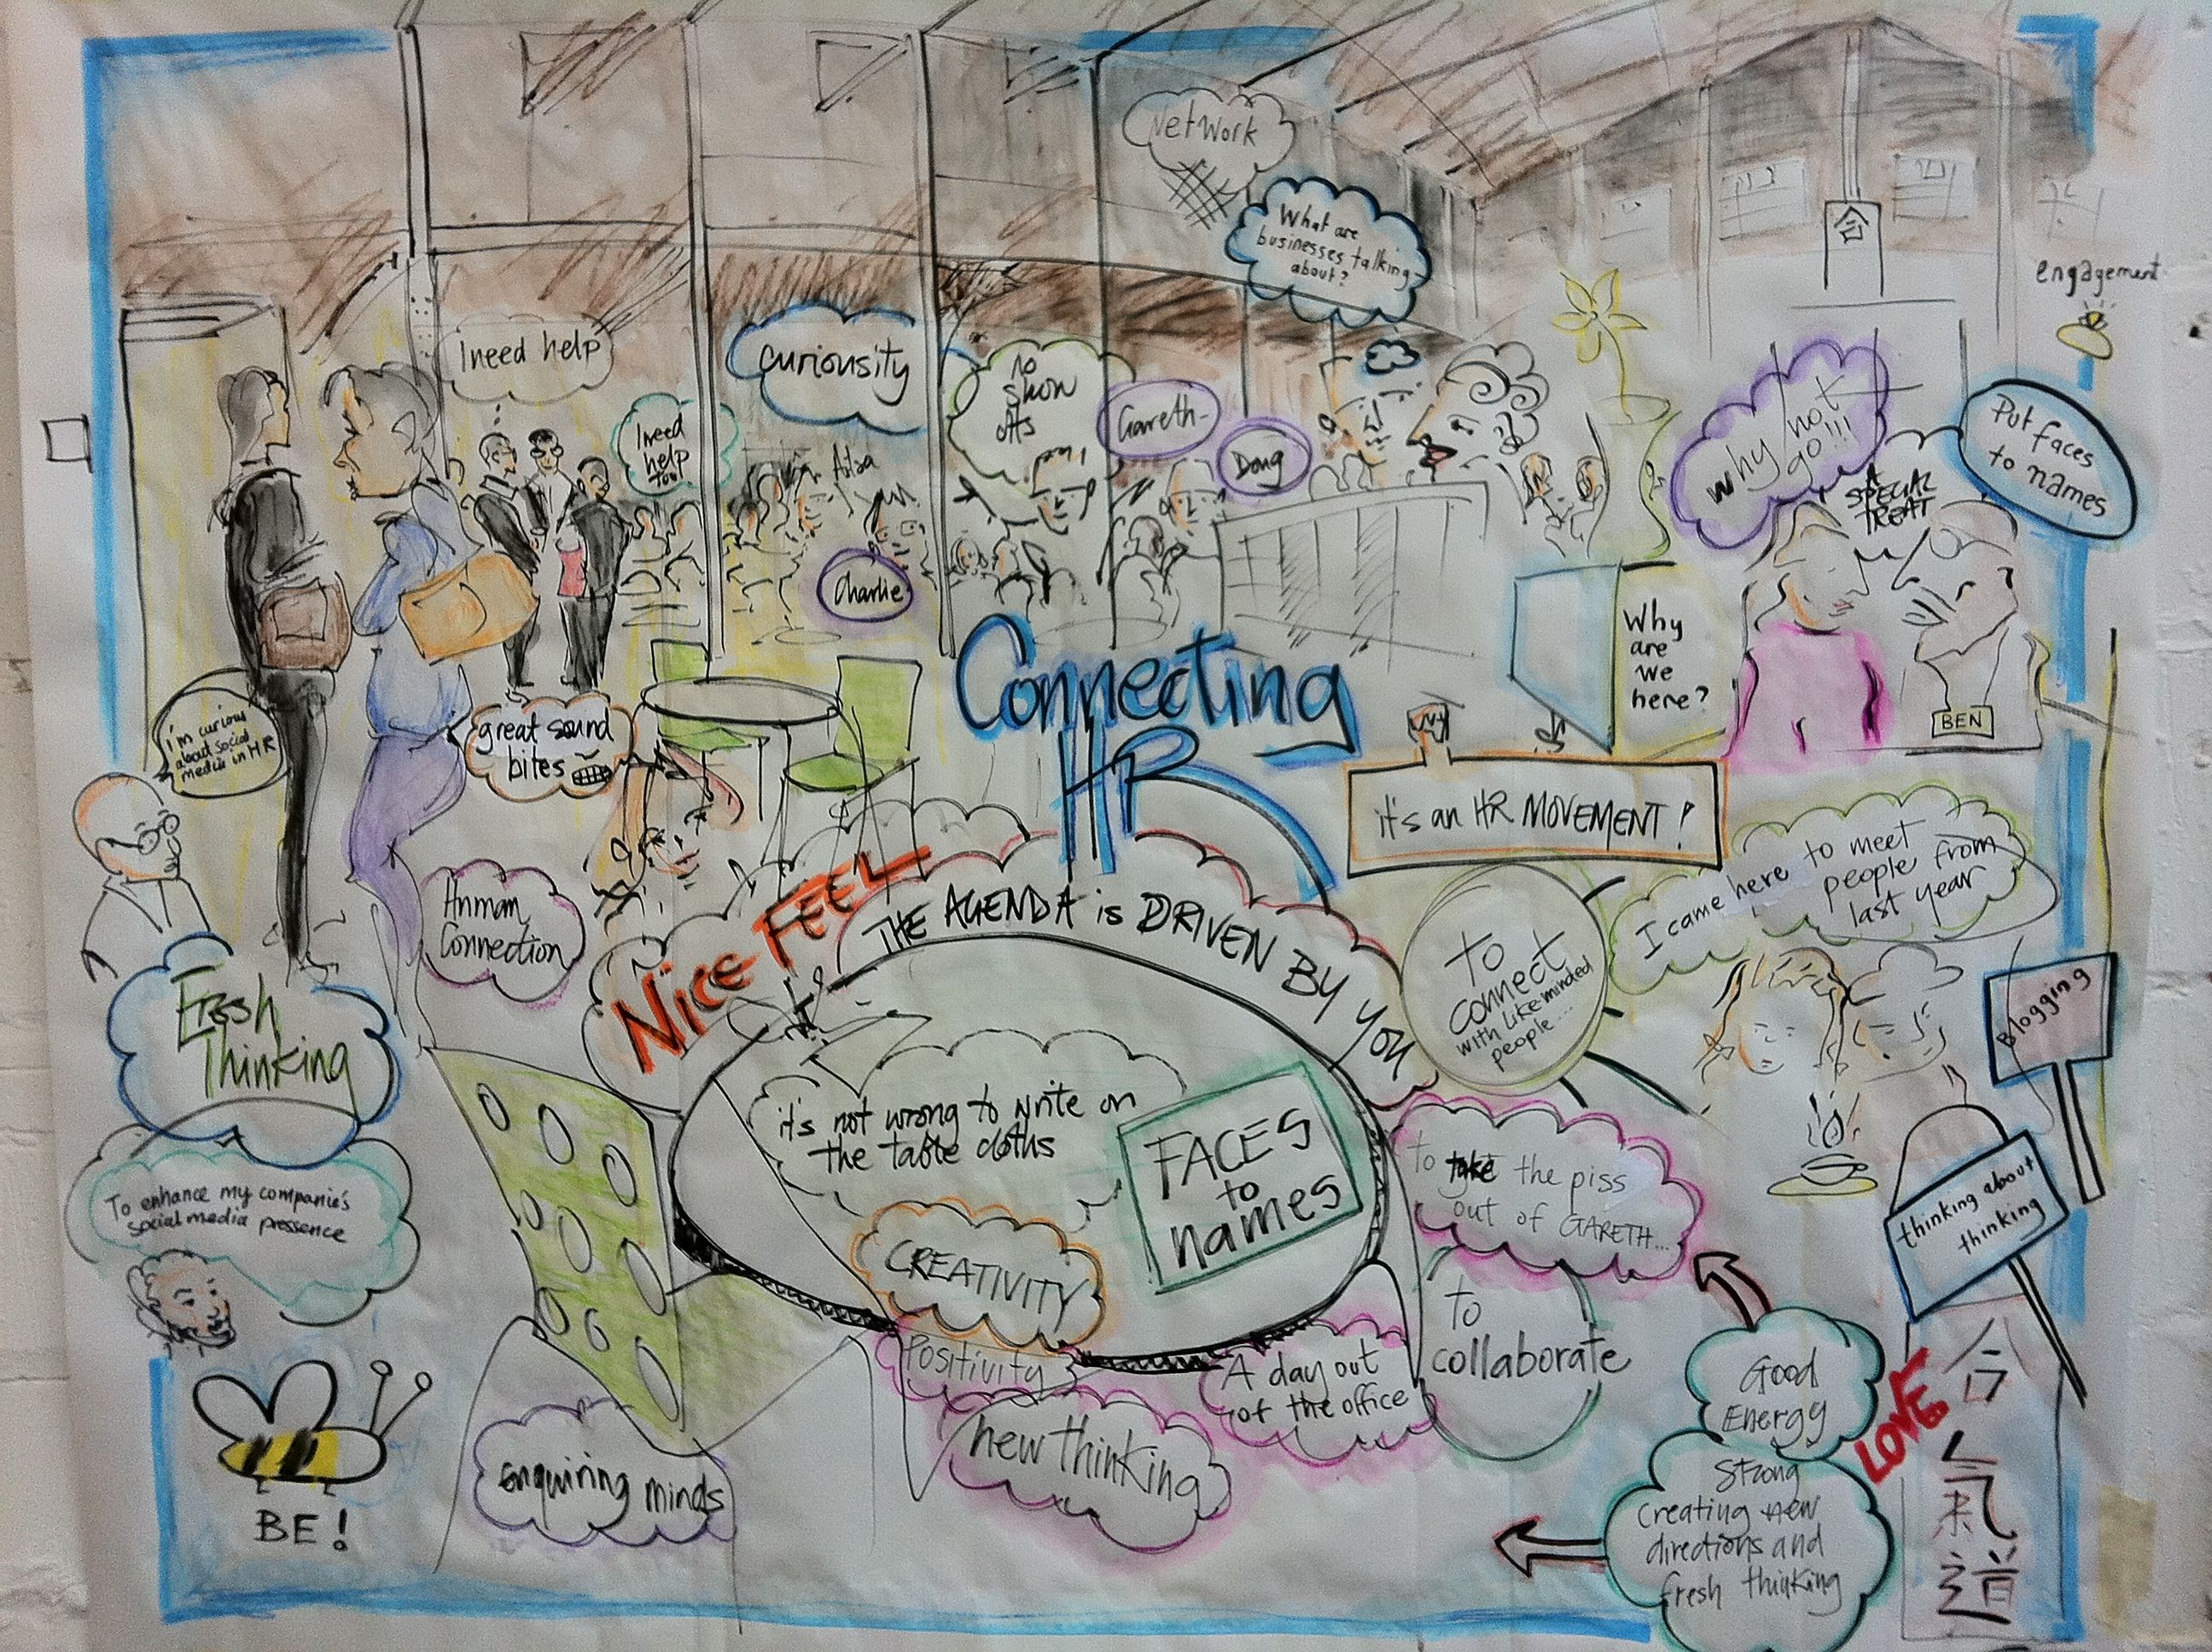 Network
What are
businesses talking
about?
合
engagement
I need help
I need
help
too!
curiosity
no
show
offs
Gareth-
Doug
Ailsa
Charlie
Why not
go!!!
A
SPECIAL
TREAT
Put faces
to names
Why
are
we
here?
BEN
Connecting
HR
i'm curious
about social
media in HR
great sound
bites
it's an HR MOVEMENT!
Human
Connection
NICE FEEL
THE AGENDA is DRIVEN BY YOU
To
connect
with like-minded
people....
I came here to meet
people from
last year
Blogging
Fresh
Thinking
it's not wrong to write on
the table cloths
FACES
to
names
to take the piss
out of GARETH...
thinking about
thinking
To enhance my companie's
social media pressence
CREATIVITY
Positivity
A day out
of the office
to
collaborate
Good
Energy
LOVE
new thinking
enquiring minds
BE!
Strong
creating new
directions and
fresh thinking
合
氣
道